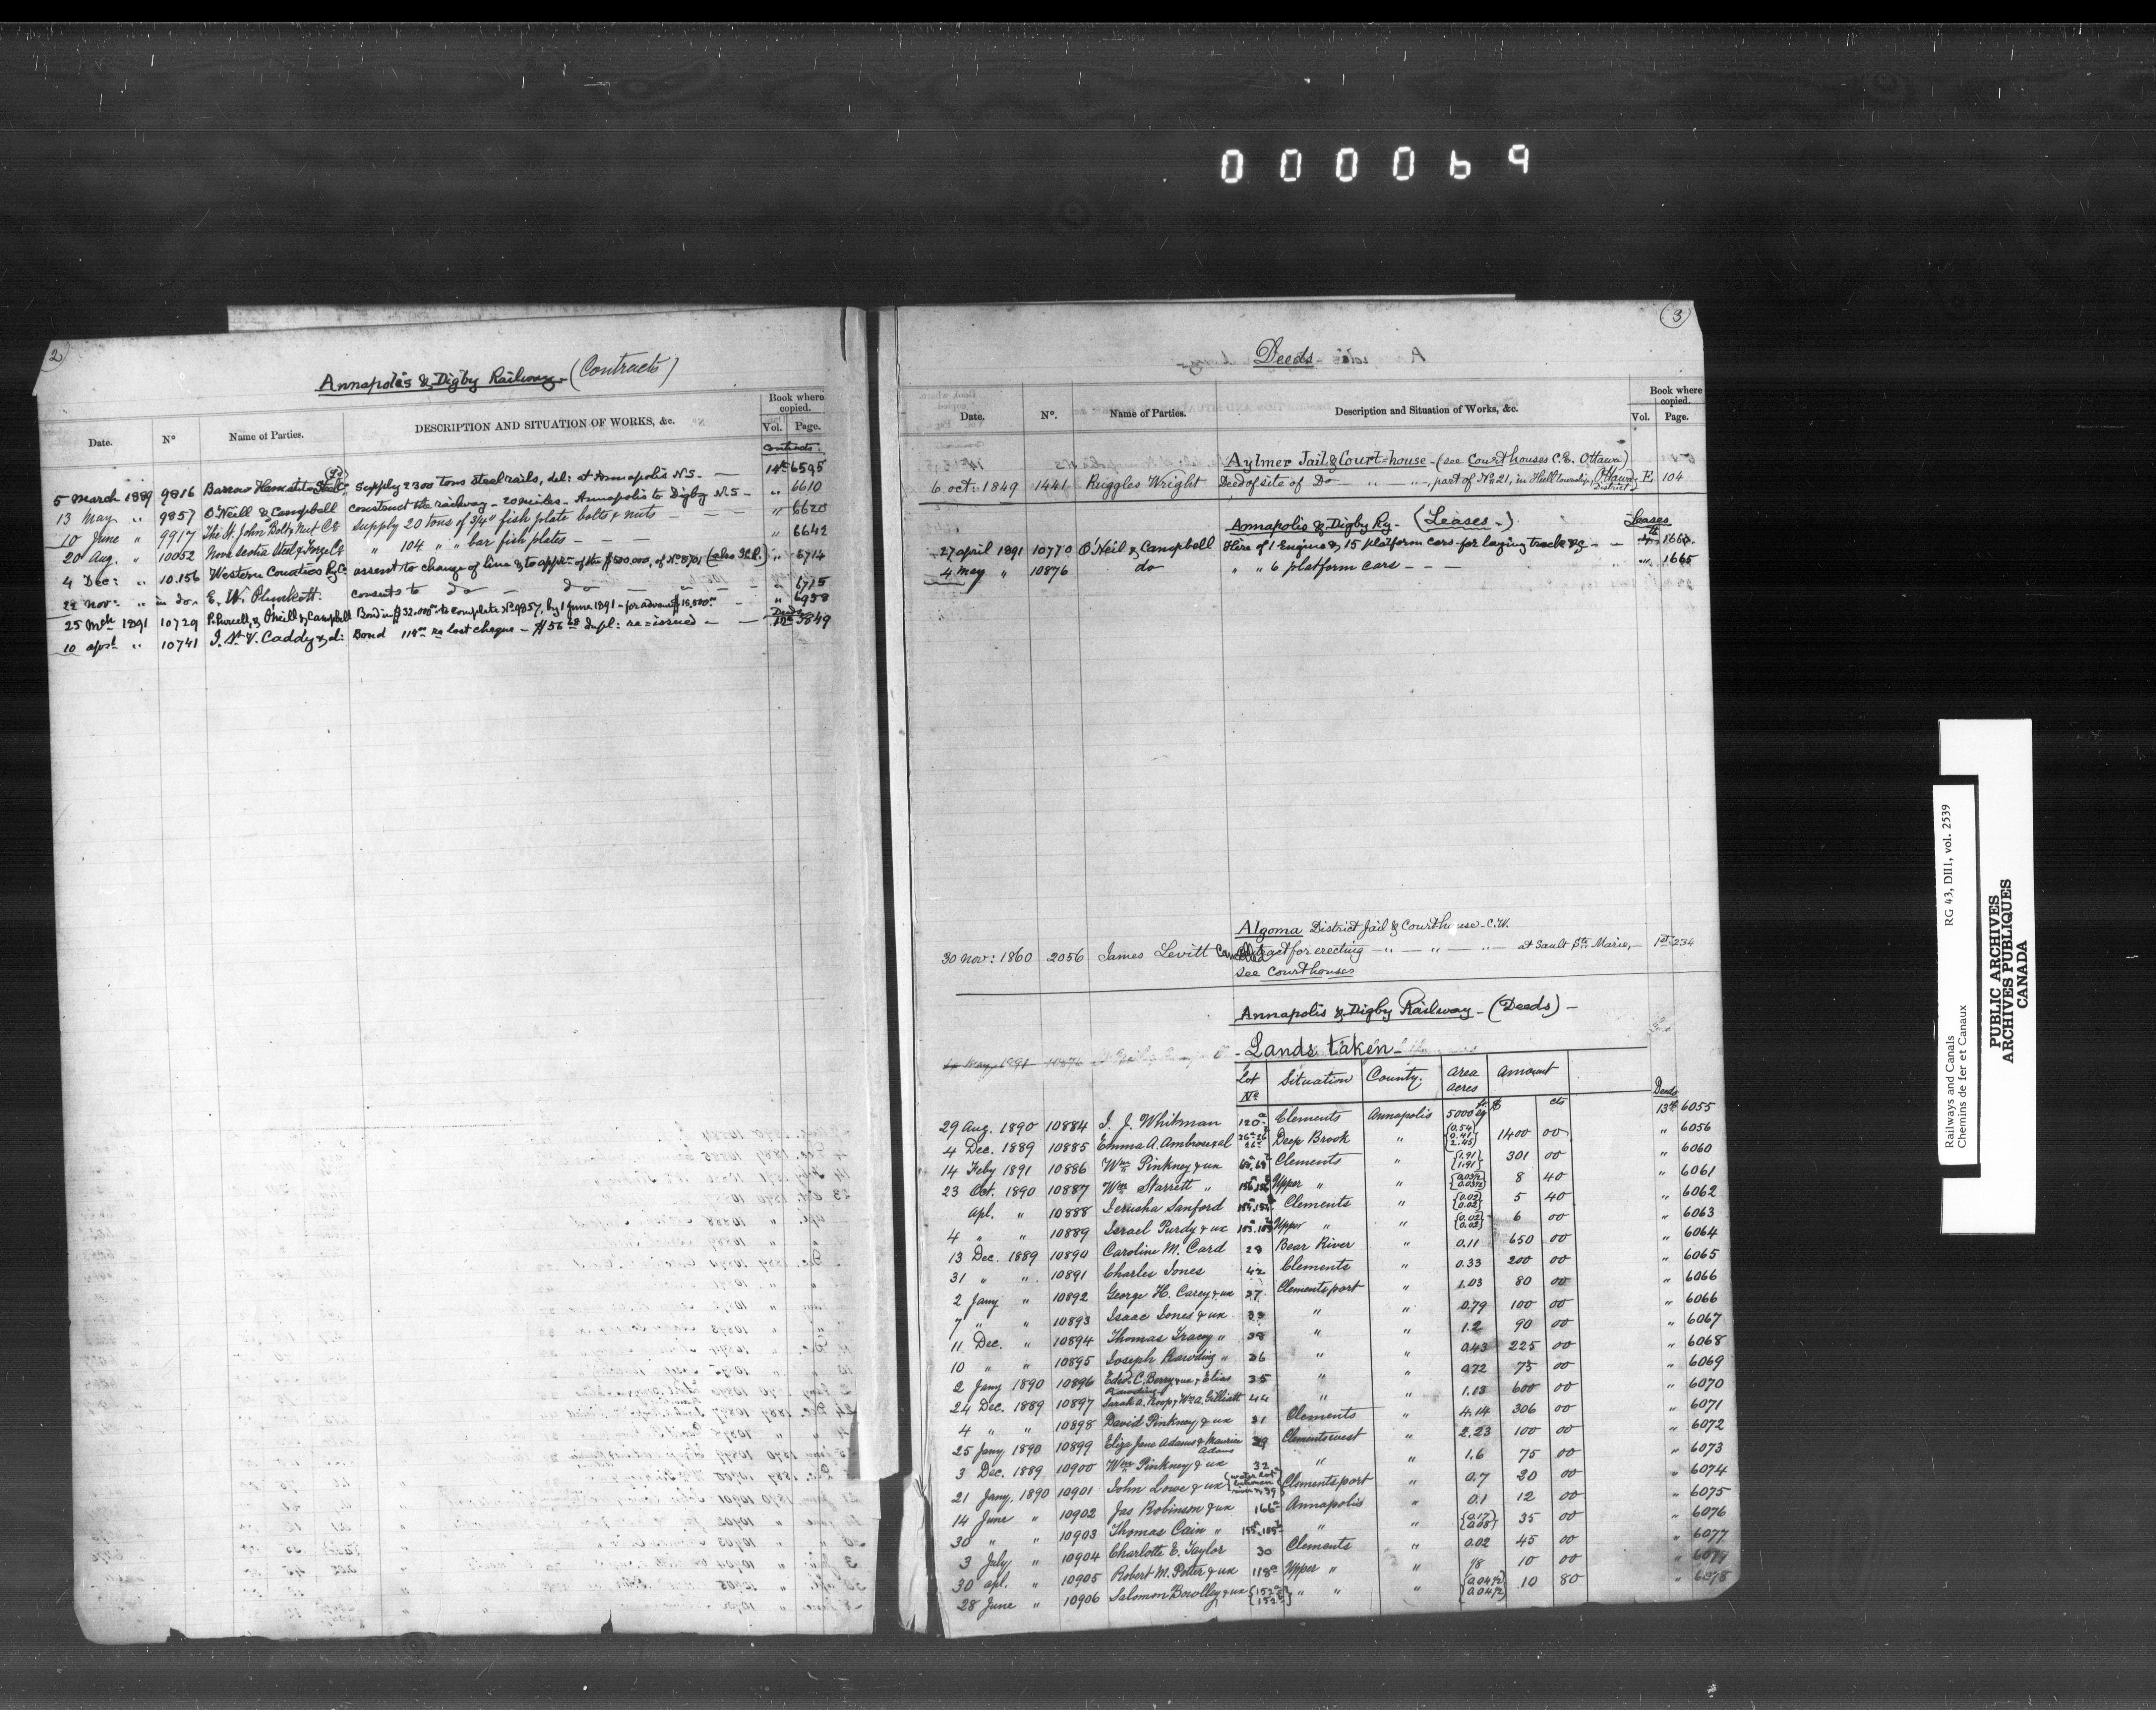 000069
2
Annapolis & Digby Railway (Contracts)
Date. | No | Name of Parties. | DESCRIPTION AND SITUATION OF WORKS, &c. | Book where copied. Vol. Page.
Contracts:
5 March 1889 | 9816 | Barrow Hematite Steel Co | Supply 2300 tons steel rails, del: at Annapolis N.S. — | 14th 6595
13 May " | 9857 | O'Neill & Campbell | Construct the railway - 20 miles - Annapolis to Digby N.S - | " 6610
10 June " | 9917 | The St. John Bolt & Nut Co | Supply 20 tons of 3/4" fish plate bolts & nuts — — — | " 6620
20 Aug. " | 10052 | Nova Scotia Steel & Forge Co | " 104 " " bar fish plates — — — | " 6642
4 Dec: " | 10.156 | Western Counties Ry Co | assent to change of line & to appn of the $500.000, of No 8701 | " 6714
22 Nov: " | in do. | E. W. Plunkett. | consents to do — do — | " 6715
25 Mch 1891 | 10729 | P. Purcell, & O'Neill & Campbell | Bond in $32.000 to complete No 9857, by 1 June 1891 - for advance $15,500 | " 6958
10 Aprl " | 10741 | J. St. V. Caddy & al: | Bond 114 re lost cheque - $56 Dupl: re-issued - | Deeds 12th 5849
3
Deeds -
Date. | No. | Name of Parties. | Description and Situation of Works, &c. | Book where copied. Vol. Page.
Aylmer Jail & Court-house - (see Courthouses C.E. Ottawa)
6 Oct: 1849 | 1441 | Ruggles Wright | Deed of site of do — " — " —, part of No 21, in Hull township, Ottawa District | E. 104
Annapolis & Digby Ry - (Leases -) | Leases
27 April 1891 | 10770 | O'Neil & Campbell | Hire of 1 Engine & 15 platform cars - for laying track &c - —
4 May " | 10876 | do | " " 6 platform cars — — — | " 1665
Algoma District Jail & Courthouse - C.W.
30 Nov: 1860 | 2056 | James Levitt | Cancelled Contract for erecting — " — " — " at Sault Ste Marie, — | 1st 234
See Courthouses
Annapolis & Digby Railway - (Deeds) -
- Lands taken -
Lot No | Situation | County. | Area acres | Amount | Deeds
29 Aug. 1890 | 10884 | I. J. Whitman | 120 a | Clements | Annapolis | 5000 | $ cts | 13th 6055
4 Dec. 1889 | 10885 | Emma A. Ambrose & al | Deep Brook | " | 0.54 0.41 2.45 | 1400 00 | " 6056
14 Feby 1891 | 10886 | Wm Pinkney & ux | Clements | " | 1.91 1.91 | 301 00 | " 6060
23 Oct. 1890 | 10887 | Wm Starrett " | Upper " | " | 8 40 | " 6061
Apl. " | 10888 | Jerusha Sanford | Clements | " | 0.02 0.02 | 5 40 | " 6062
4 " " | 10889 | Israel Purdy & ux | Upper " | " | 0.02 0.02 | 6 00 | " 6063
13 Dec. 1889 | 10890 | Caroline M. Card | Bear River | " | 0.11 | 650 00 | " 6064
31 " " | 10891 | Charles Jones | 42 | Clements | " | 0.33 | 200 00 | " 6065
2 Jany " | 10892 | George H. Carey & ux | 37 | Clementsport | " | 1.03 | 80 00 | " 6066
7 " " | 10893 | Isaac Jones & ux | " | " | 0.79 | 100 00 | " 6066
11 Dec. " | 10894 | Thomas Tracey " | 38 | " | " | 1.2 | 90 00 | " 6067
10 " " | 10895 | Joseph Rawding " | 36 | " | " | 0.43 | 225 00 | " 6068
2 Jany 1890 | 10896 | Edw. C. Berry & ux & Elias Rawding | 35 | " | " | 0.72 | 75 00 | " 6069
24 Dec. 1889 | 10897 | Sarah A. Roop & Wm A. Gilliatt | 44 | " | " | 1.13 | 600 00 | " 6070
4 " " | 10898 | David Pinkney & ux | 31 | Clements | " | 4.14 | 306 00 | " 6071
25 Jany 1890 | 10899 | Eliza Jane Adams & Maurice Adams | 29 | Clementswest | " | 2.23 | 100 00 | " 6072
3 Dec. 1889 | 10900 | Wm Pinkney & ux | 32 | " | " | 1.6 | 75 00 | " 6073
21 Jany. 1890 | 10901 | John Lowe & ux | Water Lot & 39 | Clementsport | " | 0.7 | 30 00 | " 6074
14 June " | 10902 | Jas Robinson & ux | 166 a | Annapolis | " | 0.1 | 12 00 | " 6075
30 " " | 10903 | Thomas Cain " | " | " | 0.17 0.08 | 35 00 | " 6076
3 July " | 10904 | Charlotte E. Taylor | 30 | Clements | " | 0.02 | 45 00 | " 6077
30 Apl. " | 10905 | Robert M. Potter & ux | 118 a | Upper " | " | 1/8 | 10 00 | " 6077
28 June " | 10906 | Salomon Bowlby & ux | 152 a 152 b | " " | " | 10 80 | " 6078
RG 43, DII1, vol. 2539
Railways and Canals
Chemins de fer et Canaux
PUBLIC ARCHIVES
ARCHIVES PUBLIQUES
CANADA